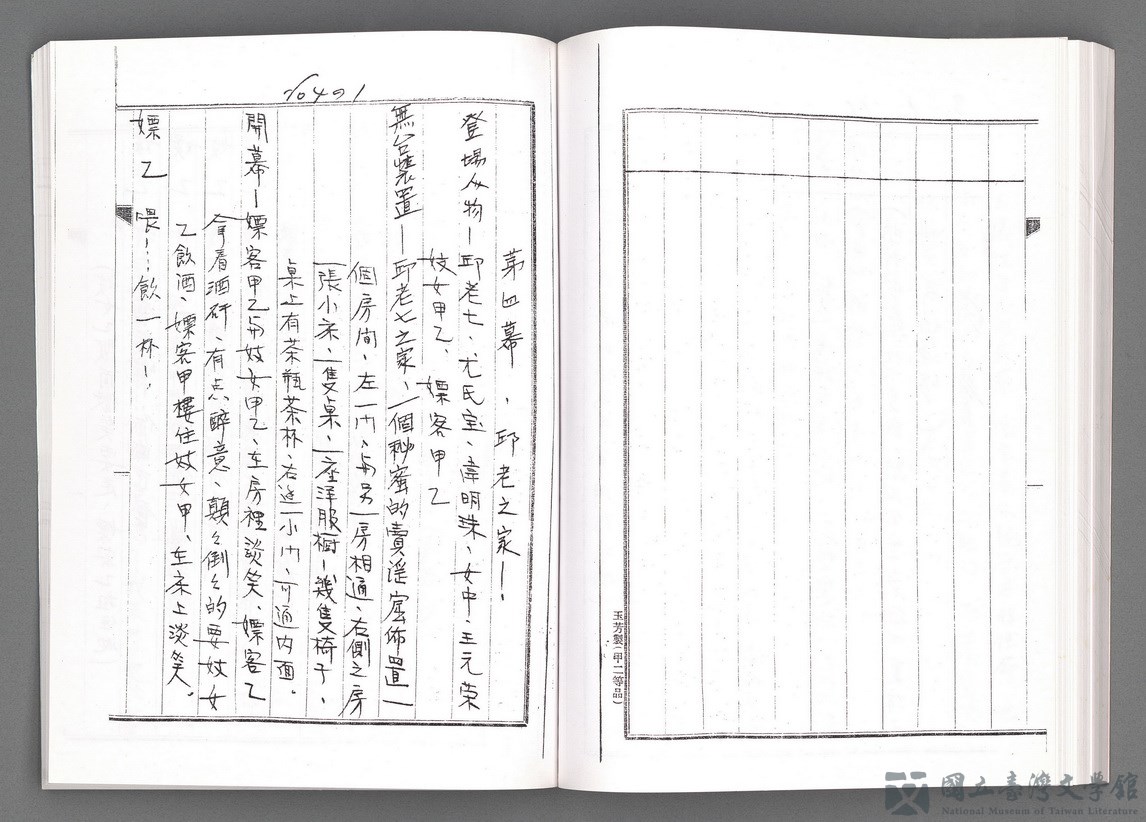 第四幕、邱老之家—!
登場人物—邱老七、尤氏宝、韋明珠、女中、王元荣
妓女甲乙、嫖客甲乙
無台裝置—邱老七之家、一個秘密的賣淫窟佈置一
個房间、左一门、与另一房相通、右側之房
一張小床、一隻桌、一座洋服櫥—幾隻椅子、
桌上有茶瓶茶杯、右边一小门、可通内面。
開幕—嫖客甲乙与妓女甲乙、在房裡談笑、嫖客乙
拿着酒矸、有点醉意、顛々倒々的要妓女
乙飲酒、嫖客甲摟住妓女甲、在床上談笑。
嫖乙 喂!…飲一杯!、
玉芳製(甲二等品)
國立臺灣文學館
National Museum of Taiwan Literature